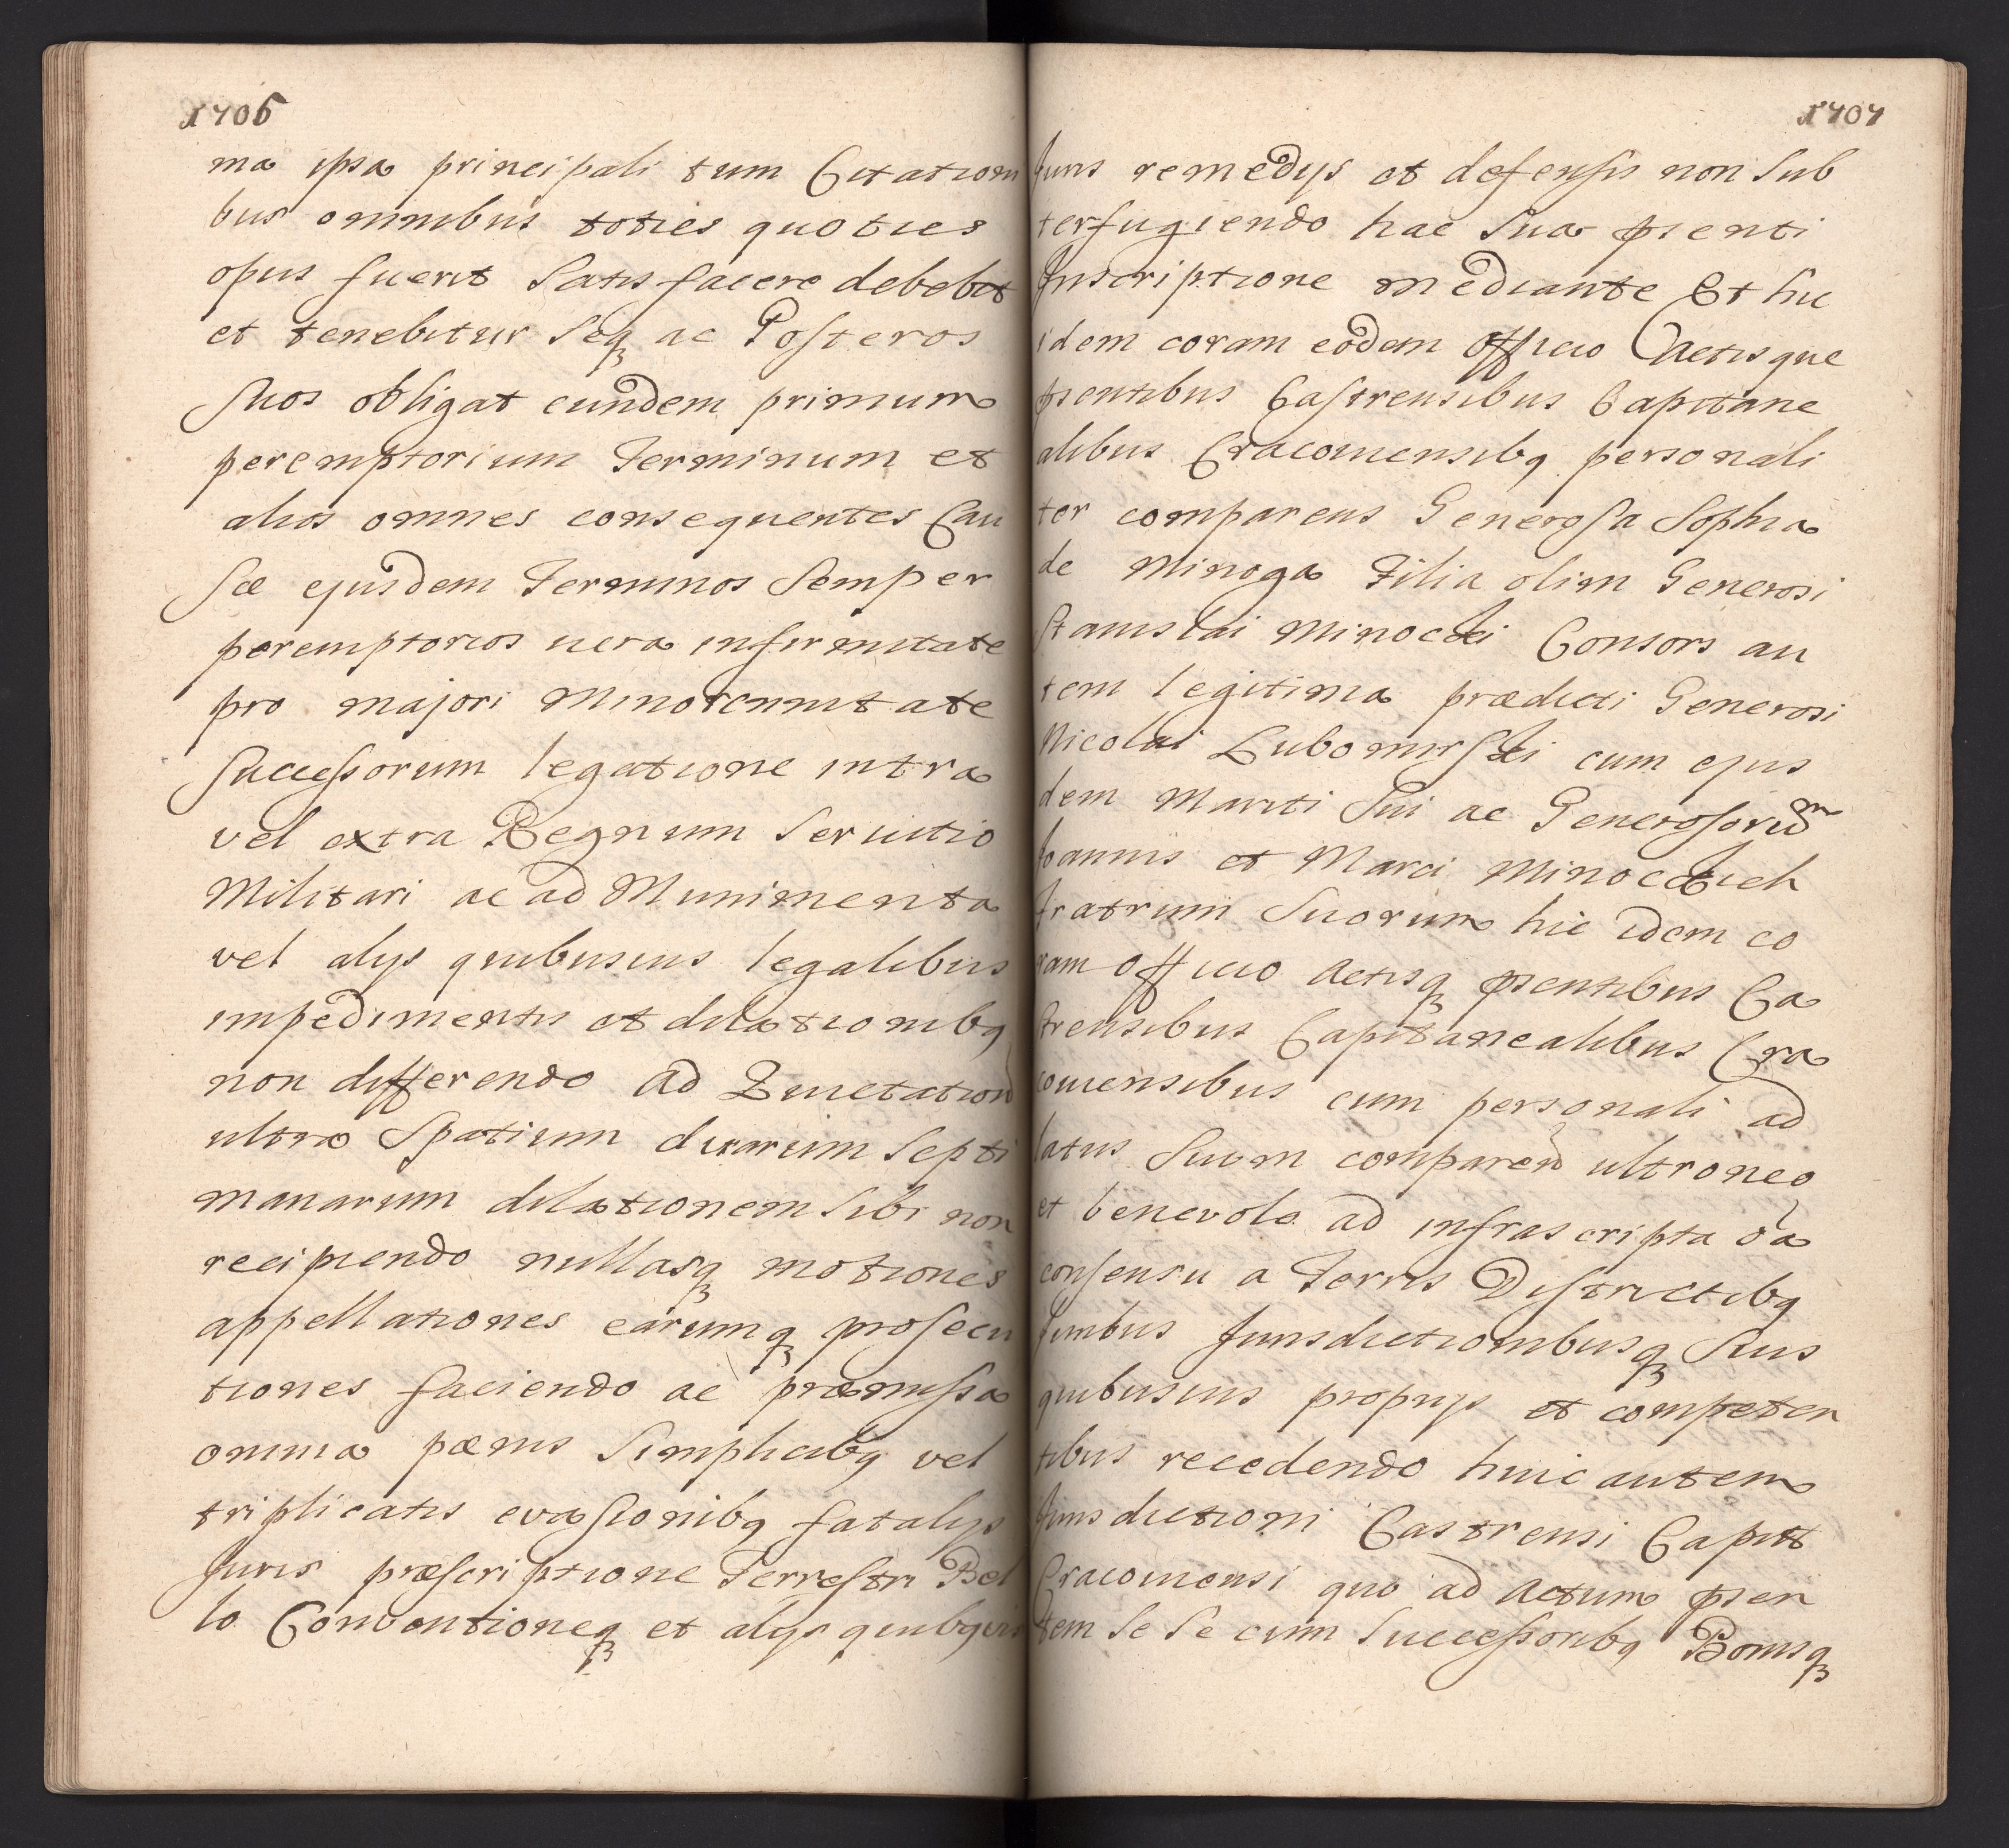 1706
ma ipsa principali tum Citationi
bus omnibus toties quoties
opus fuerit Satisfacere debebit
et tenebitur Seq ac Posteros
Suos obligat eundem primum
peremptorium Terminum et
alios omnes consequentes Cau
sæ ejusdem Terminos Semper
peremptorios uera infirmitate
pro majori Minorennitate
Successorum legatione intra
vel extra Regnum Seruitio
Militari ac ad Munimenta
vel alys quibusuis legalibus
impedimentis et dilationibq
non differendo ad Luctation
ultra Spatium duarum Septi
manarum dilationem Sibi non
recipiendo nullasq motiones
appellationes earumq prosecu
tiones faciendo ac præmissa
omnia pœnis Simplicibq vel
triplicatis evasionibq fatalys
Juris præscriptione Terrestri Bel
lo Conventioneq et alys quibqvis
1707
Juris remedys et defensis non Sub
terfugiendo hac Sua pienti
Inscriptione mediante Et hic
idem coram eodem officio Actisque
pientibus Castrensibus Capitane
alibus Cracouiensibq personali
ter comparens Generosa Sophia
de Minoga Filia olim Generosi
Stanislai Minocki Consors au
tem legitima prædicti Generosi
Nicolai Lubomirski cum ejus
dem Mariti Sui ac Generosorum
Joannis et Marci Minockich
Fratrum Suorum hic idem co
ram officio Actisq pientibus Ca
strensibus Capitanealibus Cra
couiensibus cum personali ad
latus Suum comparen ultroneo
et benevolo ad infrascripta oa
consensu a Terris Districtibq
Juribus Jurisdictionibusq Suis
quibusuis proprys et competen
tibus recedendo huic autem
Jurisdictioni Castrensi Capit
Cracouiensi quo ad actum pien
tem Se Se cum Successoribq Bonisq